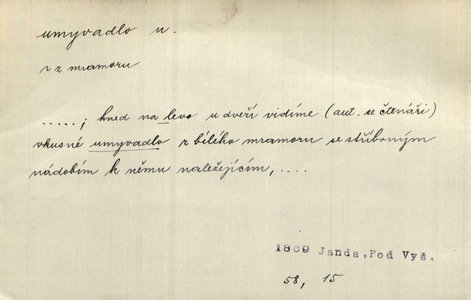 umyvadlo n.
z mramoru
.....; hned na levo u dveří vidíme (aut. se čtenáři)
vkusné umyvadlo z bílého mramoru se stříbrným
nádobím k němu náležejícím, ....
1889 Janda, Pod Vyš.
58, 15